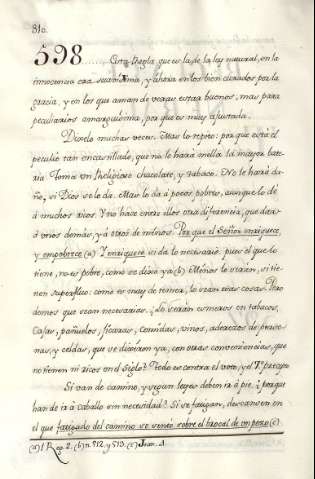 310.
598 ..... Esta Regla, que es la de la ley natural, en la
inocencia era suavísima, y ahora en los bien librados por la
gracia, y en los que aman de veras estar buenos, mas para
peculiarios amarguísima, por que es muy ajustada.
Dixelo muchas veces. Mas lo repito: por que está el
peculio tan encastillado, que no le hará mella la mayor bate-
ría. Toma un Religioso chocolate, y tabaco. No le hará da-
ño, si Dios se lo da. Mas lo da á pocos pobres, aunque lo dé
á muchos ricos. Y no hace entre ellos otra diferencia, que dar
á unos demás, y á otros de menos. Por que el Señor enriquece,
y empobrece (a) Y enriqueció si da lo necesario: pues el que lo
tiene, no es pobre, como se dixo ya (b) Menos lo serán, si tie-
nen superfluo: como es muy de temer, lo sean esas cosas. Pero
demos que sean necesarias. ¿Lo serán esmeros en tabacos,
cajas, pañuelos, jícaras, comidas, vinos, aderezos de perso-
nas, y celdas, que ve dixeron ya, con otras conveniencias, que
no tienen ni ricos en el siglo? Todo es contra el voto, y el 7º. precepto
Si van de camino, y segun leyes deben ir á pie. ¿porque
han de ir á caballo sin necesidad? Si se fatigan, descansen en
el que fatigado del camino se sentó sobre el brocal de un pozo (c).
(a) 1. Reg. 2. (b) n. 512. y 513. (c) Joan. 4.